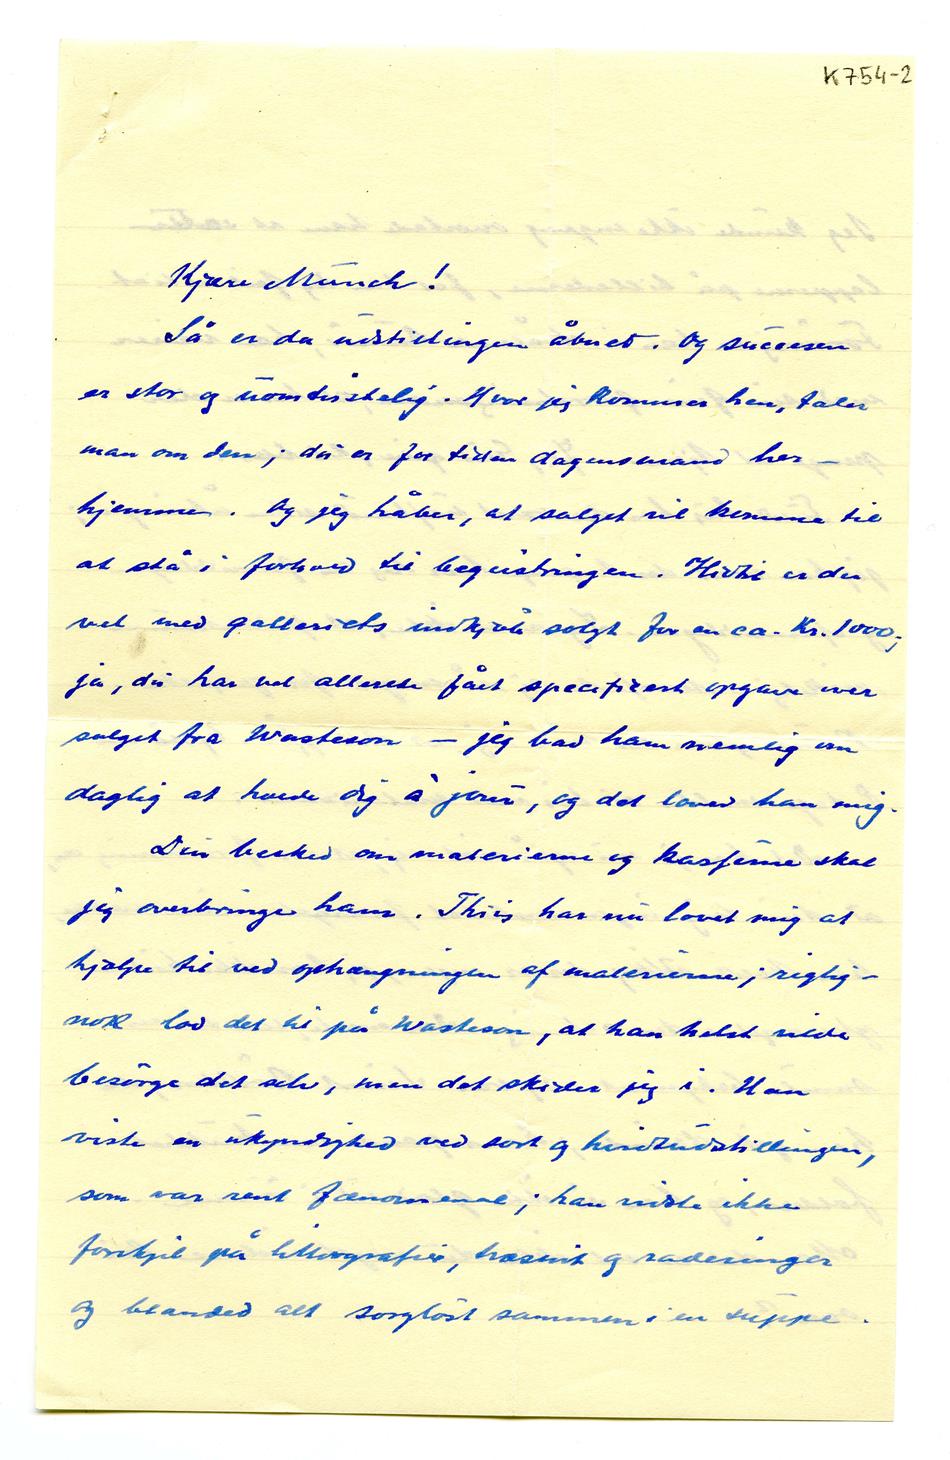 K754-2
Kjære Munch!
Så er da udstillingen åbnet. Og succesen
er stor og uomtvistelig. Hvor jeg kommer hen, taler
man om den; du er for tiden dagensmand her-
hjemme. Og jeg håber, at salget vil komme til
at stå i forhold til begeistringen. Hidtil er der
vel med galleriets indkjøb solgt for en ca. Kr. 1000,-
ja, du har vel allerede fået specificert opgave over
salget fra Wasteson – jeg bad ham nemlig om
daglig at holde dig à jour, og det loved han mig.
Din besked om malerierne og kasserne skal
jeg overbringe ham. Thiis har nu lovet mig at
hjælpe til ved ophængningen af malerierne; rigtig-
nok lod det til på Wasteson, at han helst vilde
besørge det selv, men det skider jeg i. Han
viste en ukyndighed ved sort og hvidtudstillingen,
som var rent fænomenal; han vidste ikke
forskjel på litografier, træsnit og raderinger
og blanded alt sorgløst sammen i en suppe.